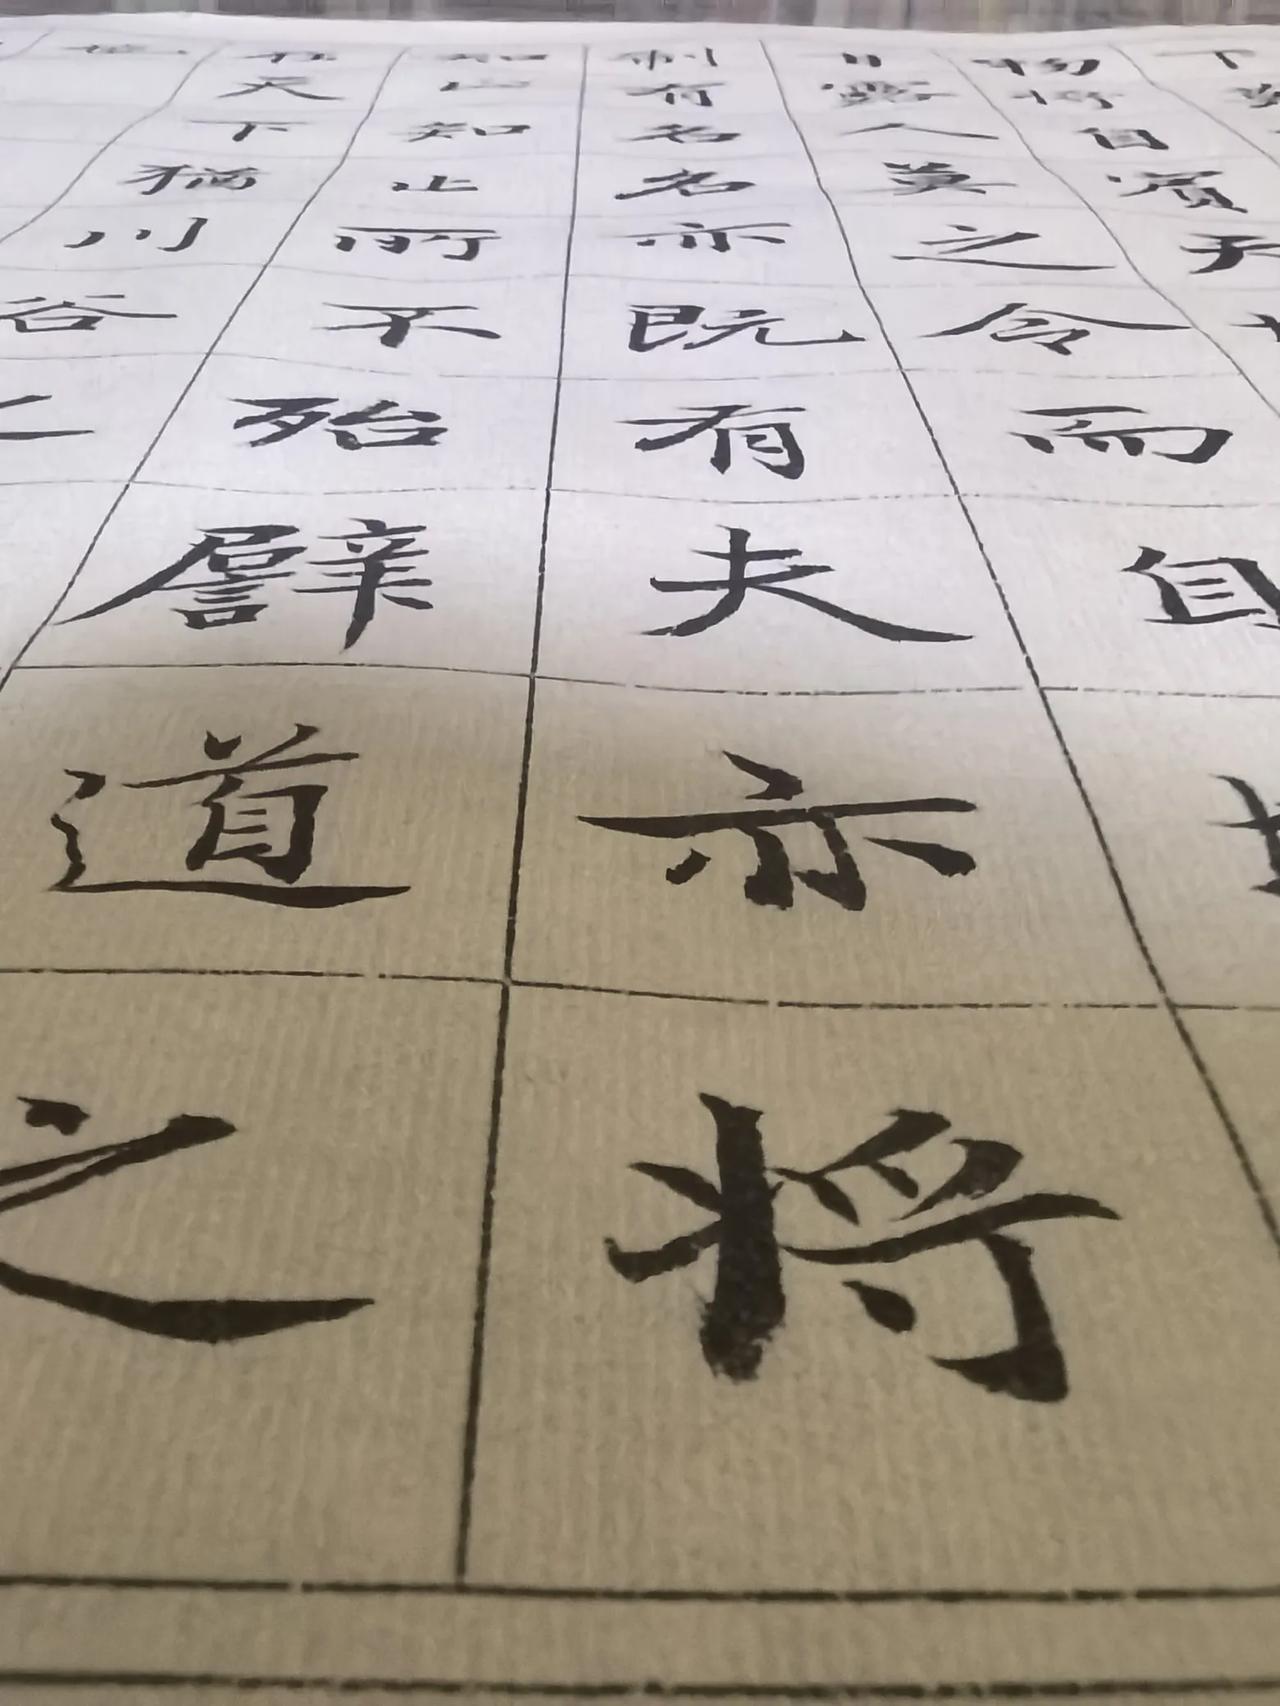 下
物将自賓天
甘露人莫之令而自
制有名名亦既有夫亦将
知止知止所不殆譬道之
在天下猶川谷之